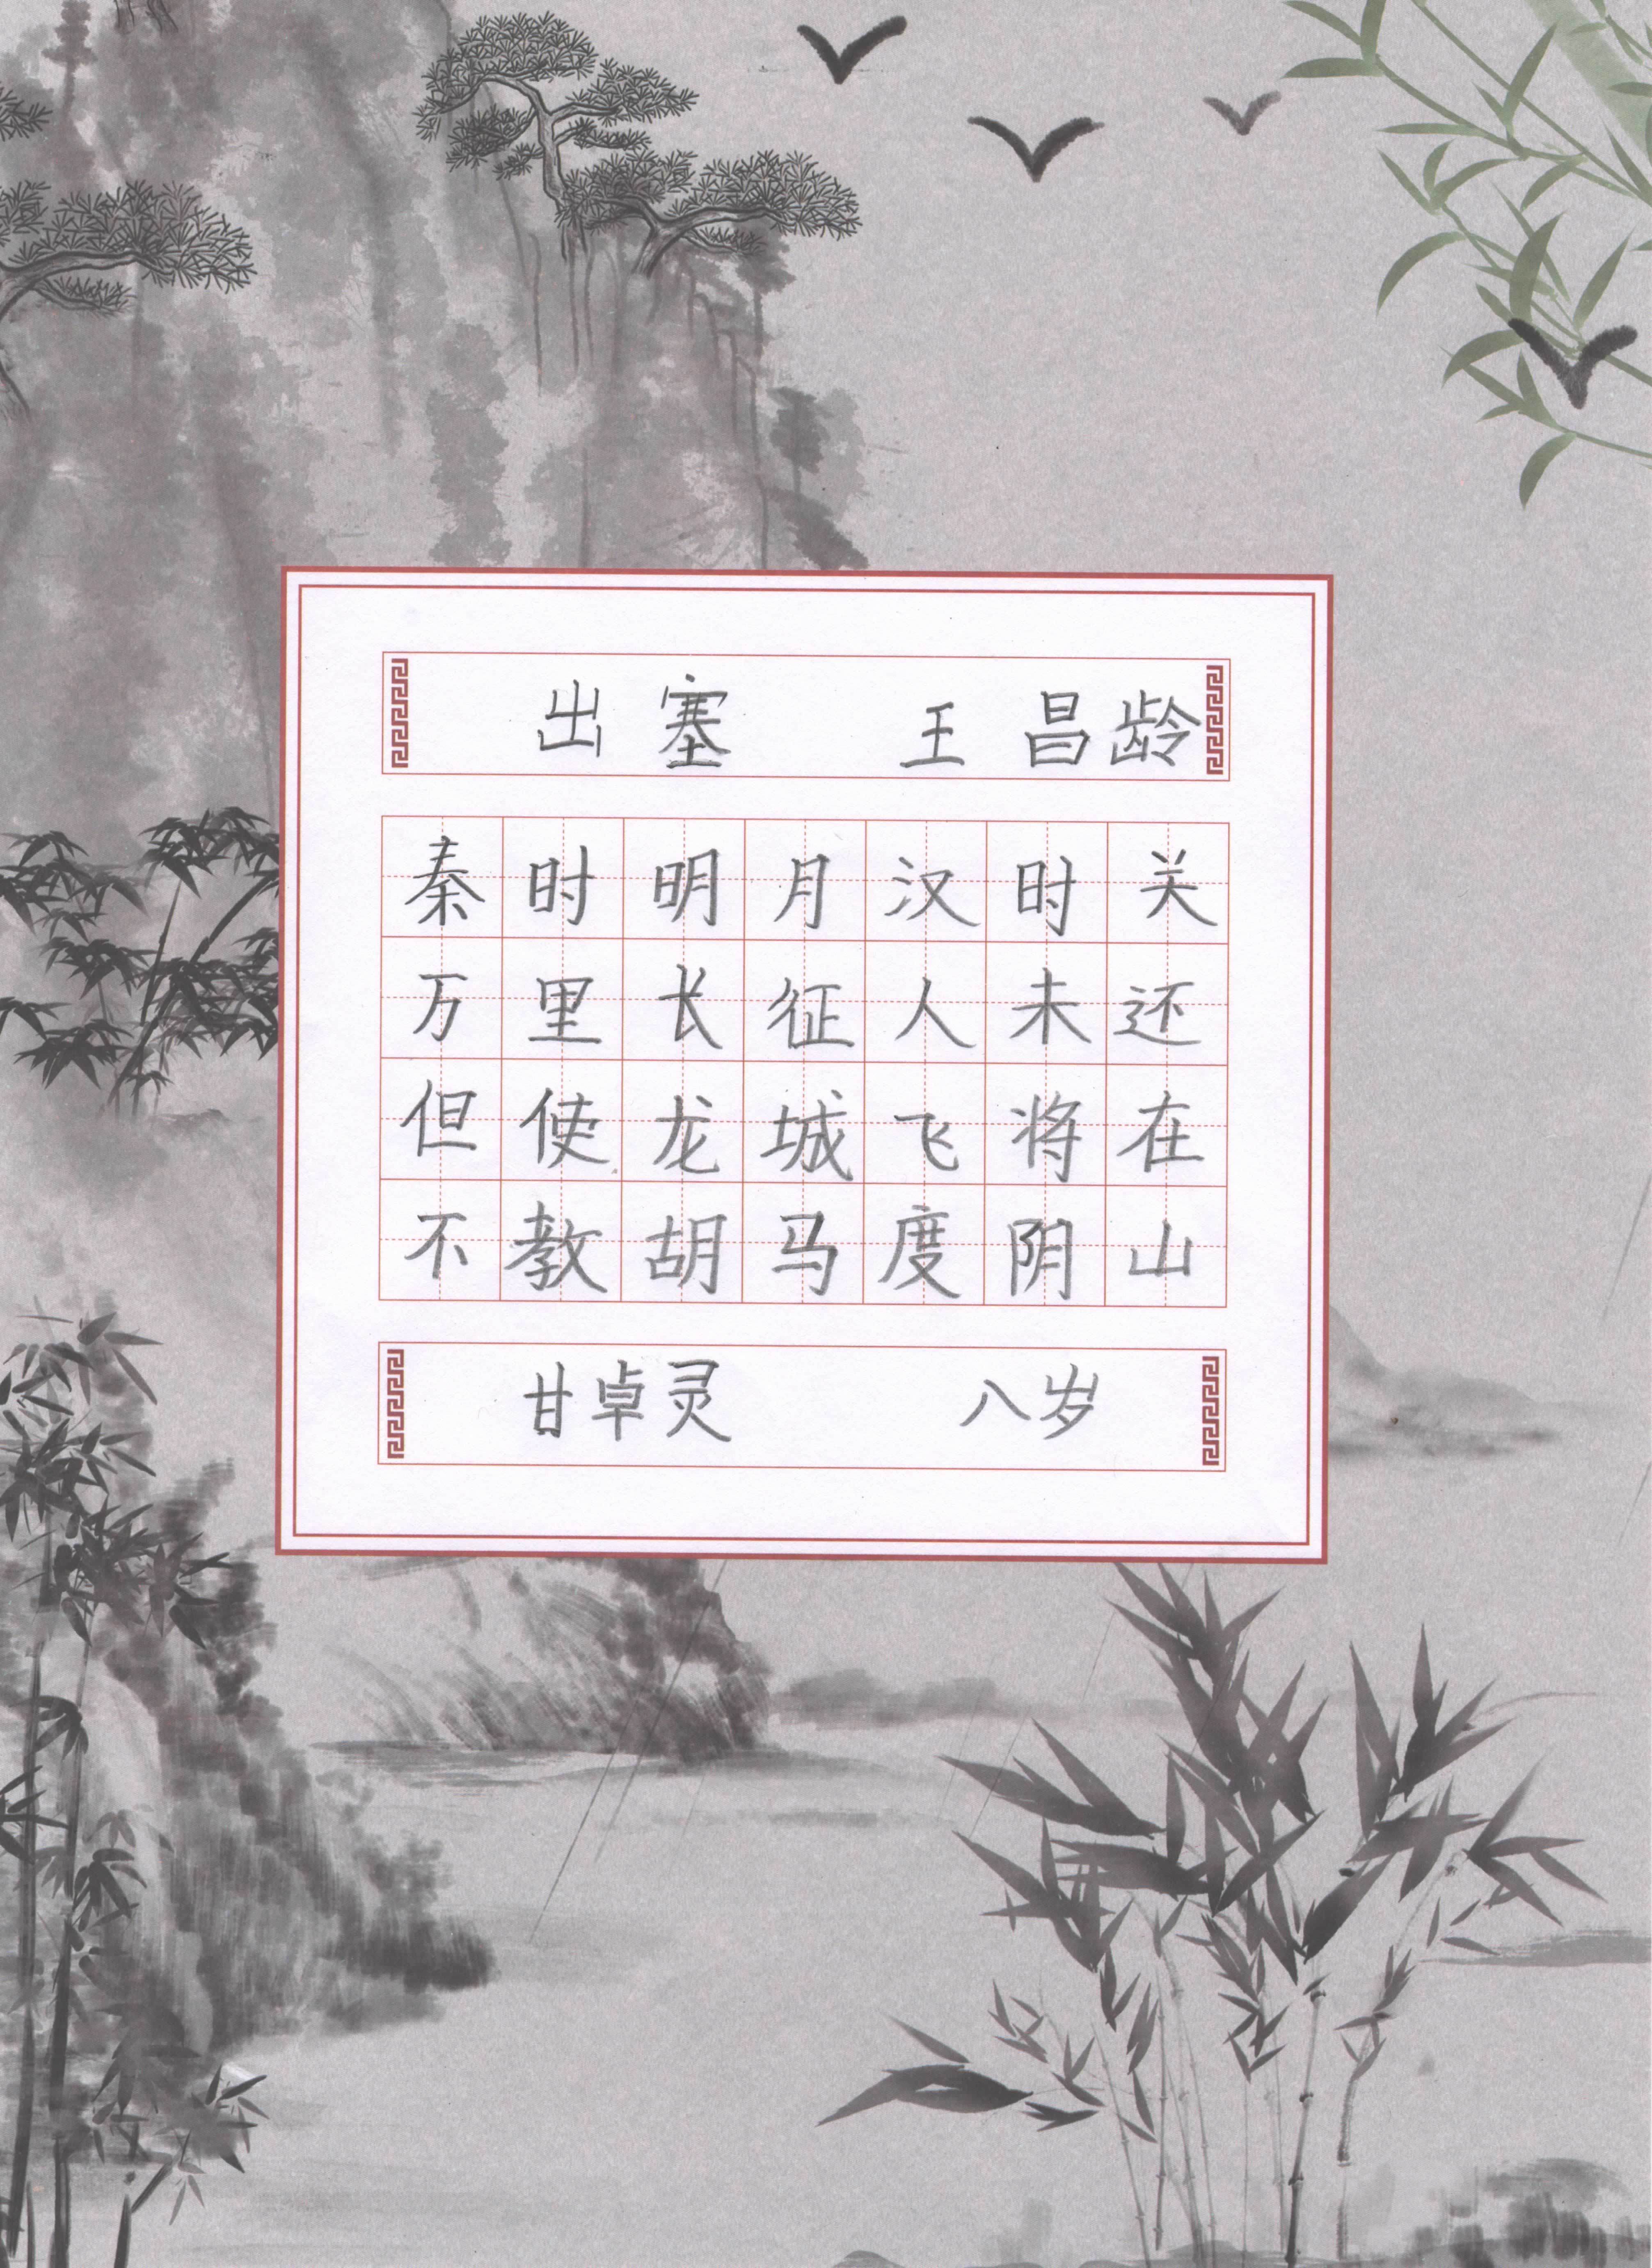 出塞 王昌龄
秦时明月汉时关
万里长征人未还
但使龙城飞将在
不教胡马度阴山
甘卓灵 八岁